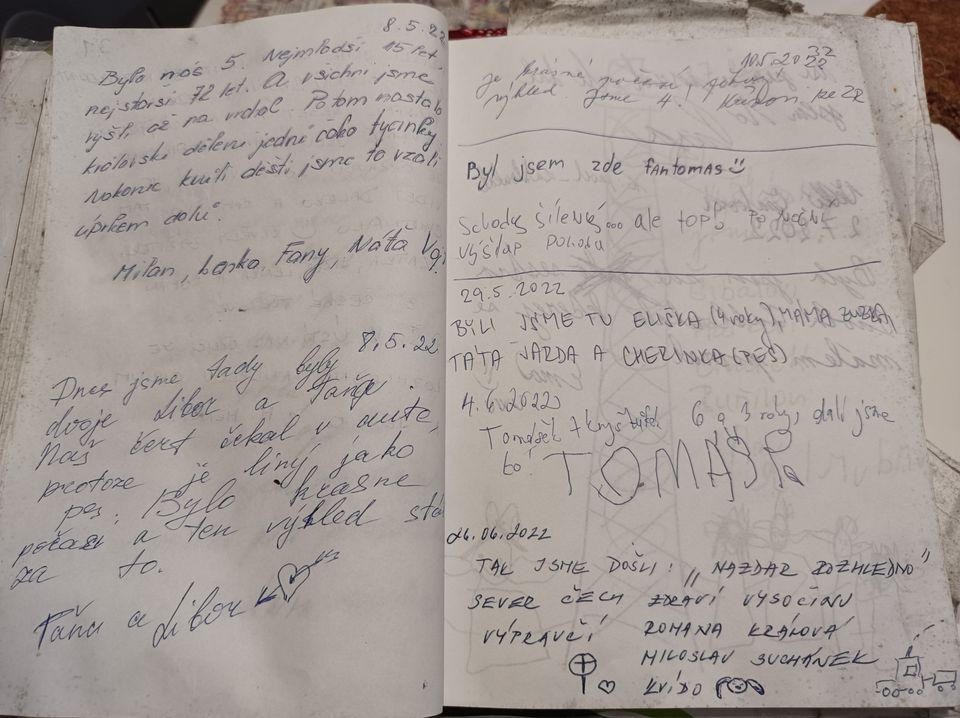 8.5.22
Bylo nás 5. Nejmladší 15 let
nejstarší 72 let. A všichni jsme
vyšli až na vrchol. Potom nastalo
královské dělení jedné čoko tyčinky
Nakonec kvůli dešti jsme to vzali
úprkem dolů.
Milan, Lenka Fany, Náťa
8.5.22
Dnes jsme tady byly
dvoje Libor a Táňa.
Náš čert čekal v autě,
protože je líný jako
pes. Bylo krásné
počasí a ten výhled stál
za to.
Táňa a Libor
10.5.2022
Je krásné počasí,
výhled jsme 4. ze ZR
Byl jsem zde fantomas
Schody šílený... ale top! Po noční
výšlap pohoda
29.5.2022
BYLI JSME TU ELIŠKA (4 roky), MÁMA ZUZKA,
TÁTA JARDA A CHERINKA (PES)
4.6.2022
Tomášek + Kryštůfek 6 a 3 roky, dali jsme
to!
TOMÁŠ
26.06.2022
TAK JSME DOŠLI: "NAZDAR ROZHLEDNO"
SEVER ČECH ZDRAVÍ VYSOČINU
VÝPRAVČÍ ROMANA KRÁLOVÁ
MILOSLAV SUCHÁNEK
KVÍDO